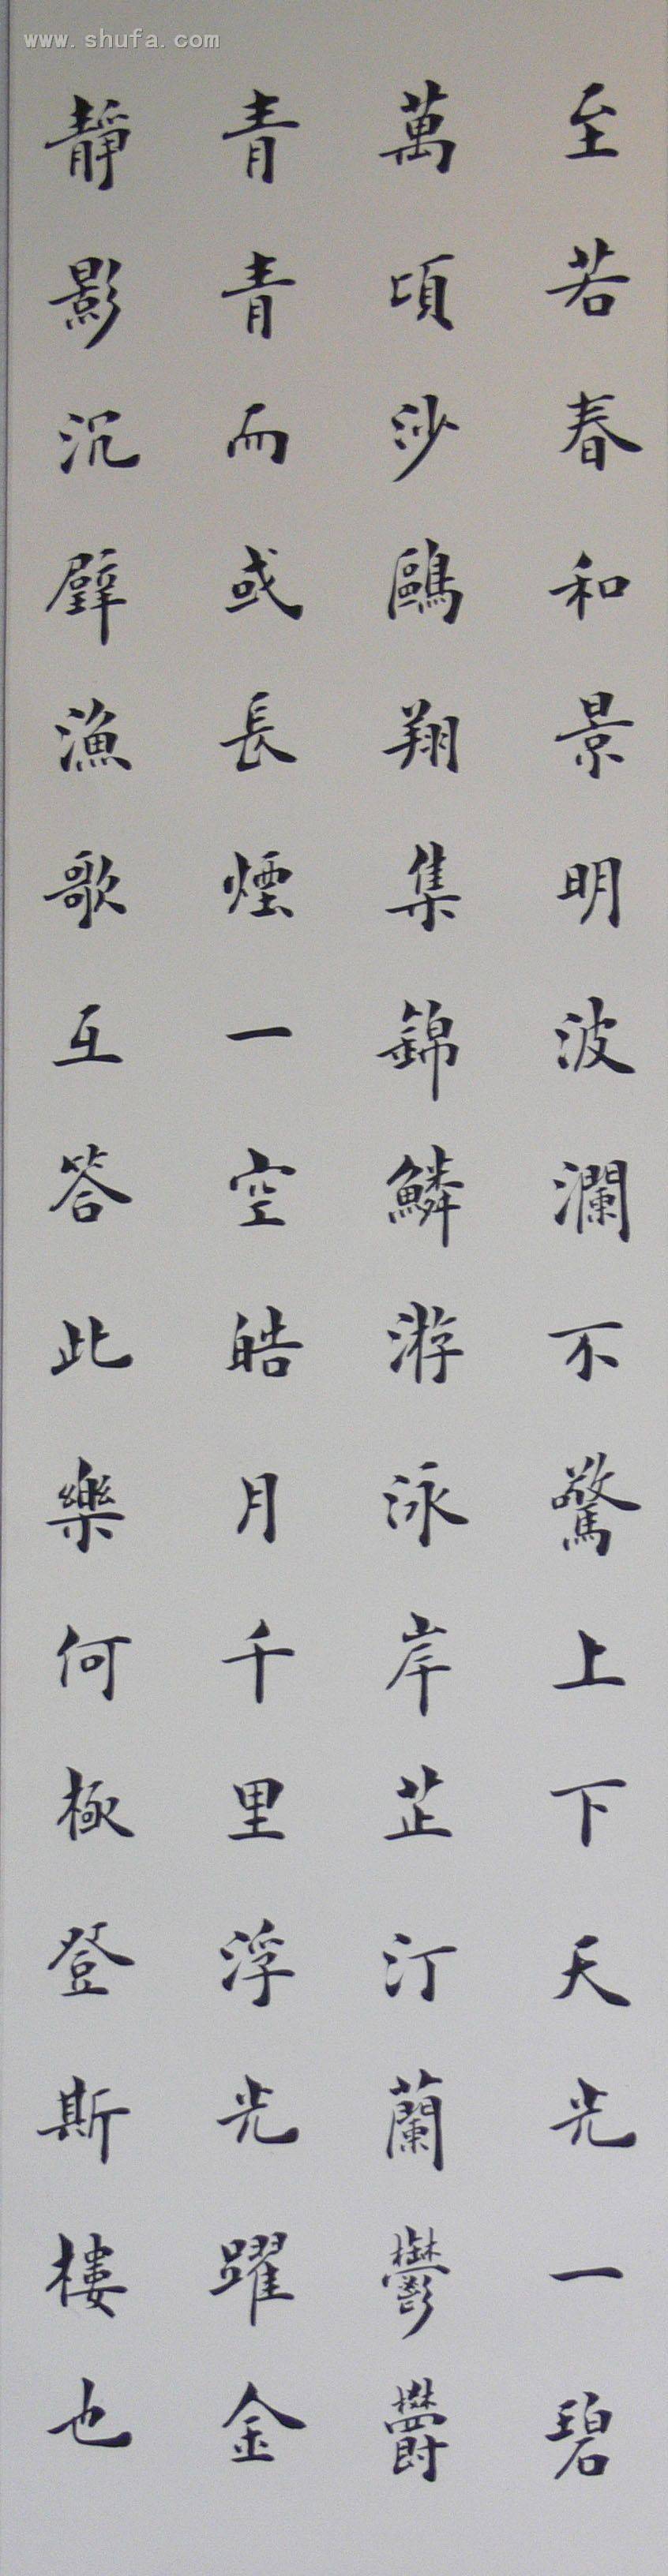 www.shufa.com
至若春和景明波瀾不驚上下天光一碧
萬頃沙鷗翔集錦鱗游泳岸芷汀蘭鬱欝
青青而或長煙一空皓月千里浮光躍金
靜影沉璧漁歌互答此樂何極登斯樓也